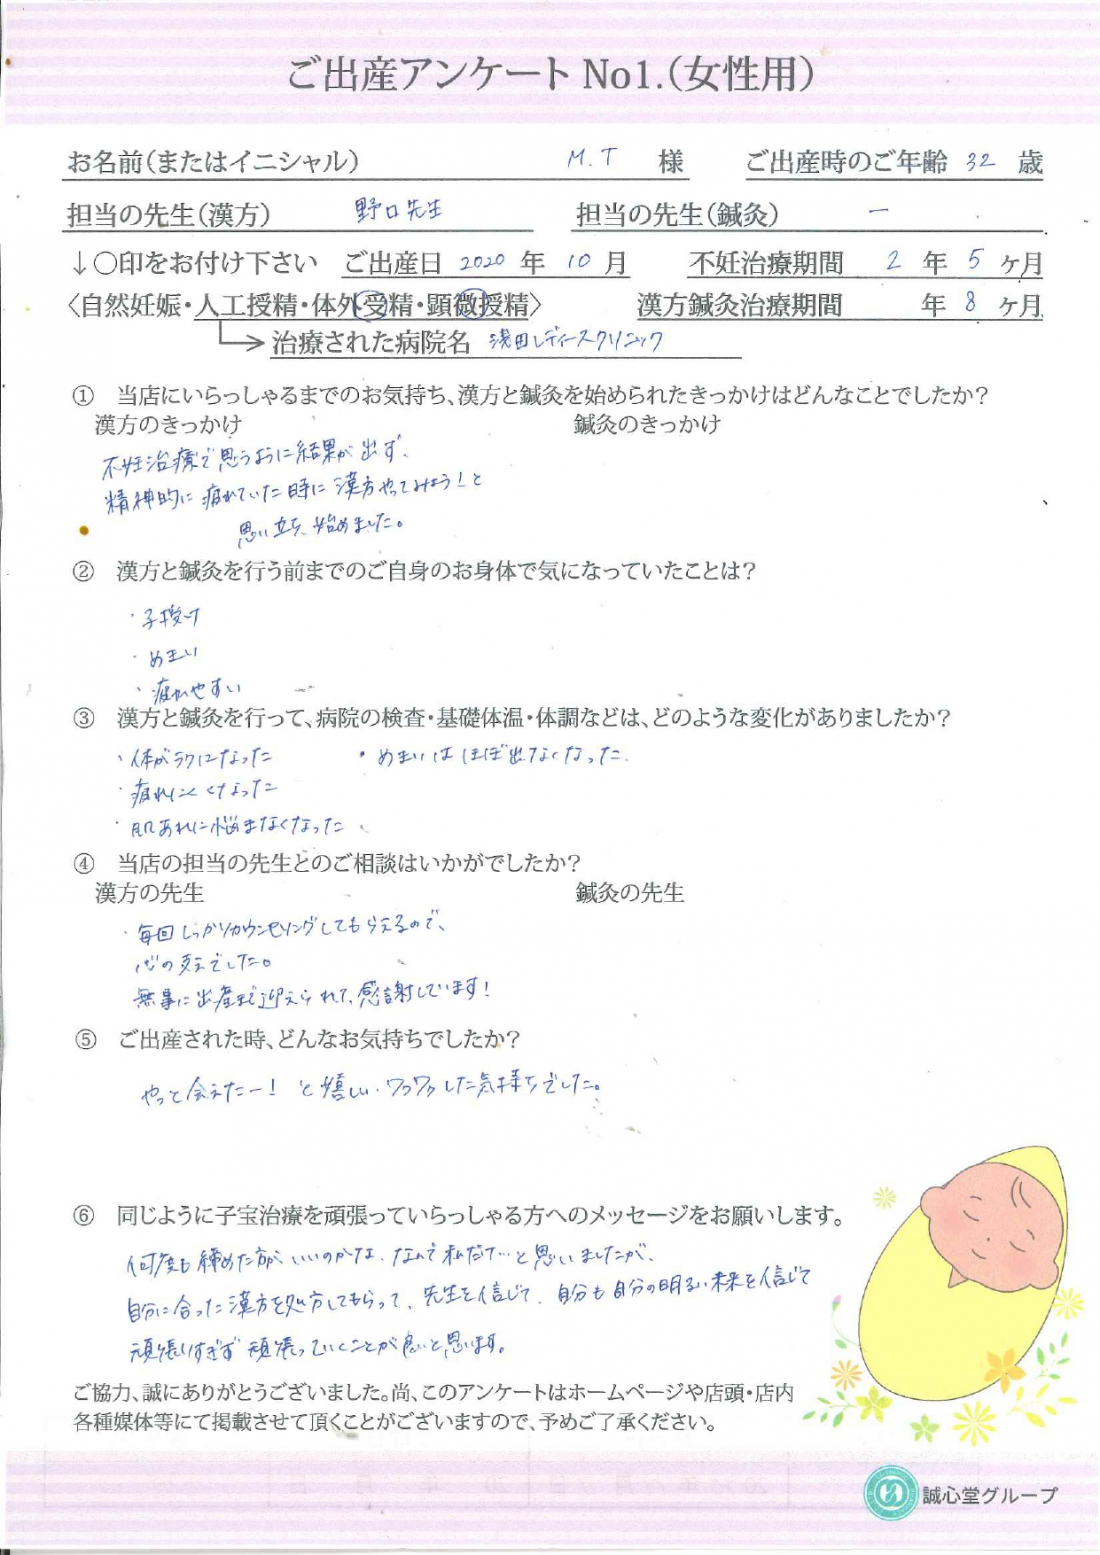 ご出産アンケート No1.（女性用）
お名前（またはイニシャル） M.T 様 ご出産時のご年齢 32 歳
担当の先生（漢方） 野口先生 担当の先生（鍼灸） ー
↓〇印をお付け下さい ご出産日 2020 年 10 月 不妊治療期間 2 年 5 ヶ月
〈自然妊娠・人工授精・体外受精・顕微授精〉 漢方鍼灸治療期間 年 8 ヶ月
治療された病院名 浅田レディースクリニック
① 当店にいらっしゃるまでのお気持ち、漢方と鍼灸を始められたきっかけはどんなことでしたか？
漢方のきっかけ 鍼灸のきっかけ
不妊治療で思うように結果が出ず、
精神的に疲れていた時に漢方やってみよう！と
思い立ち、始めました。
② 漢方と鍼灸を行う前までのご自身のお身体で気になっていたことは？
・子授け
・めまい
・疲れやすい
③ 漢方と鍼灸を行って、病院の検査・基礎体温・体調などは、どのような変化がありましたか？
・体がラクになった ・めまいはほぼ出なくなった.
・疲れにくくなった
・肌あれに悩まなくなった
④ 当店の担当の先生とのご相談はいかがでしたか？
漢方の先生 鍼灸の先生
・毎回しっかりカウンセリングしてもらえるので、
心の支えでした。
無事に出産まで迎えられて、感謝しています！
⑤ ご出産された時、どんなお気持ちでしたか？
やっと会えたー！と嬉しい・ワクワクした気持ちでした。
⑥ 同じように子宝治療を頑張っていらっしゃる方へのメッセージをお願いします。
何度も諦めた方がいいのかな、なんで私だけ…と思いましたが、
自分に合った漢方を処方してもらって、先生を信じて、自分も自分の明るい未来を信じて
頑張りすぎず頑張っていくことが良いと思います。
ご協力、誠にありがとうございました。尚、このアンケートはホームページや店頭・店内
各種媒体等にて掲載させて頂くことがございますので、予めご了承ください。
誠心堂グループ